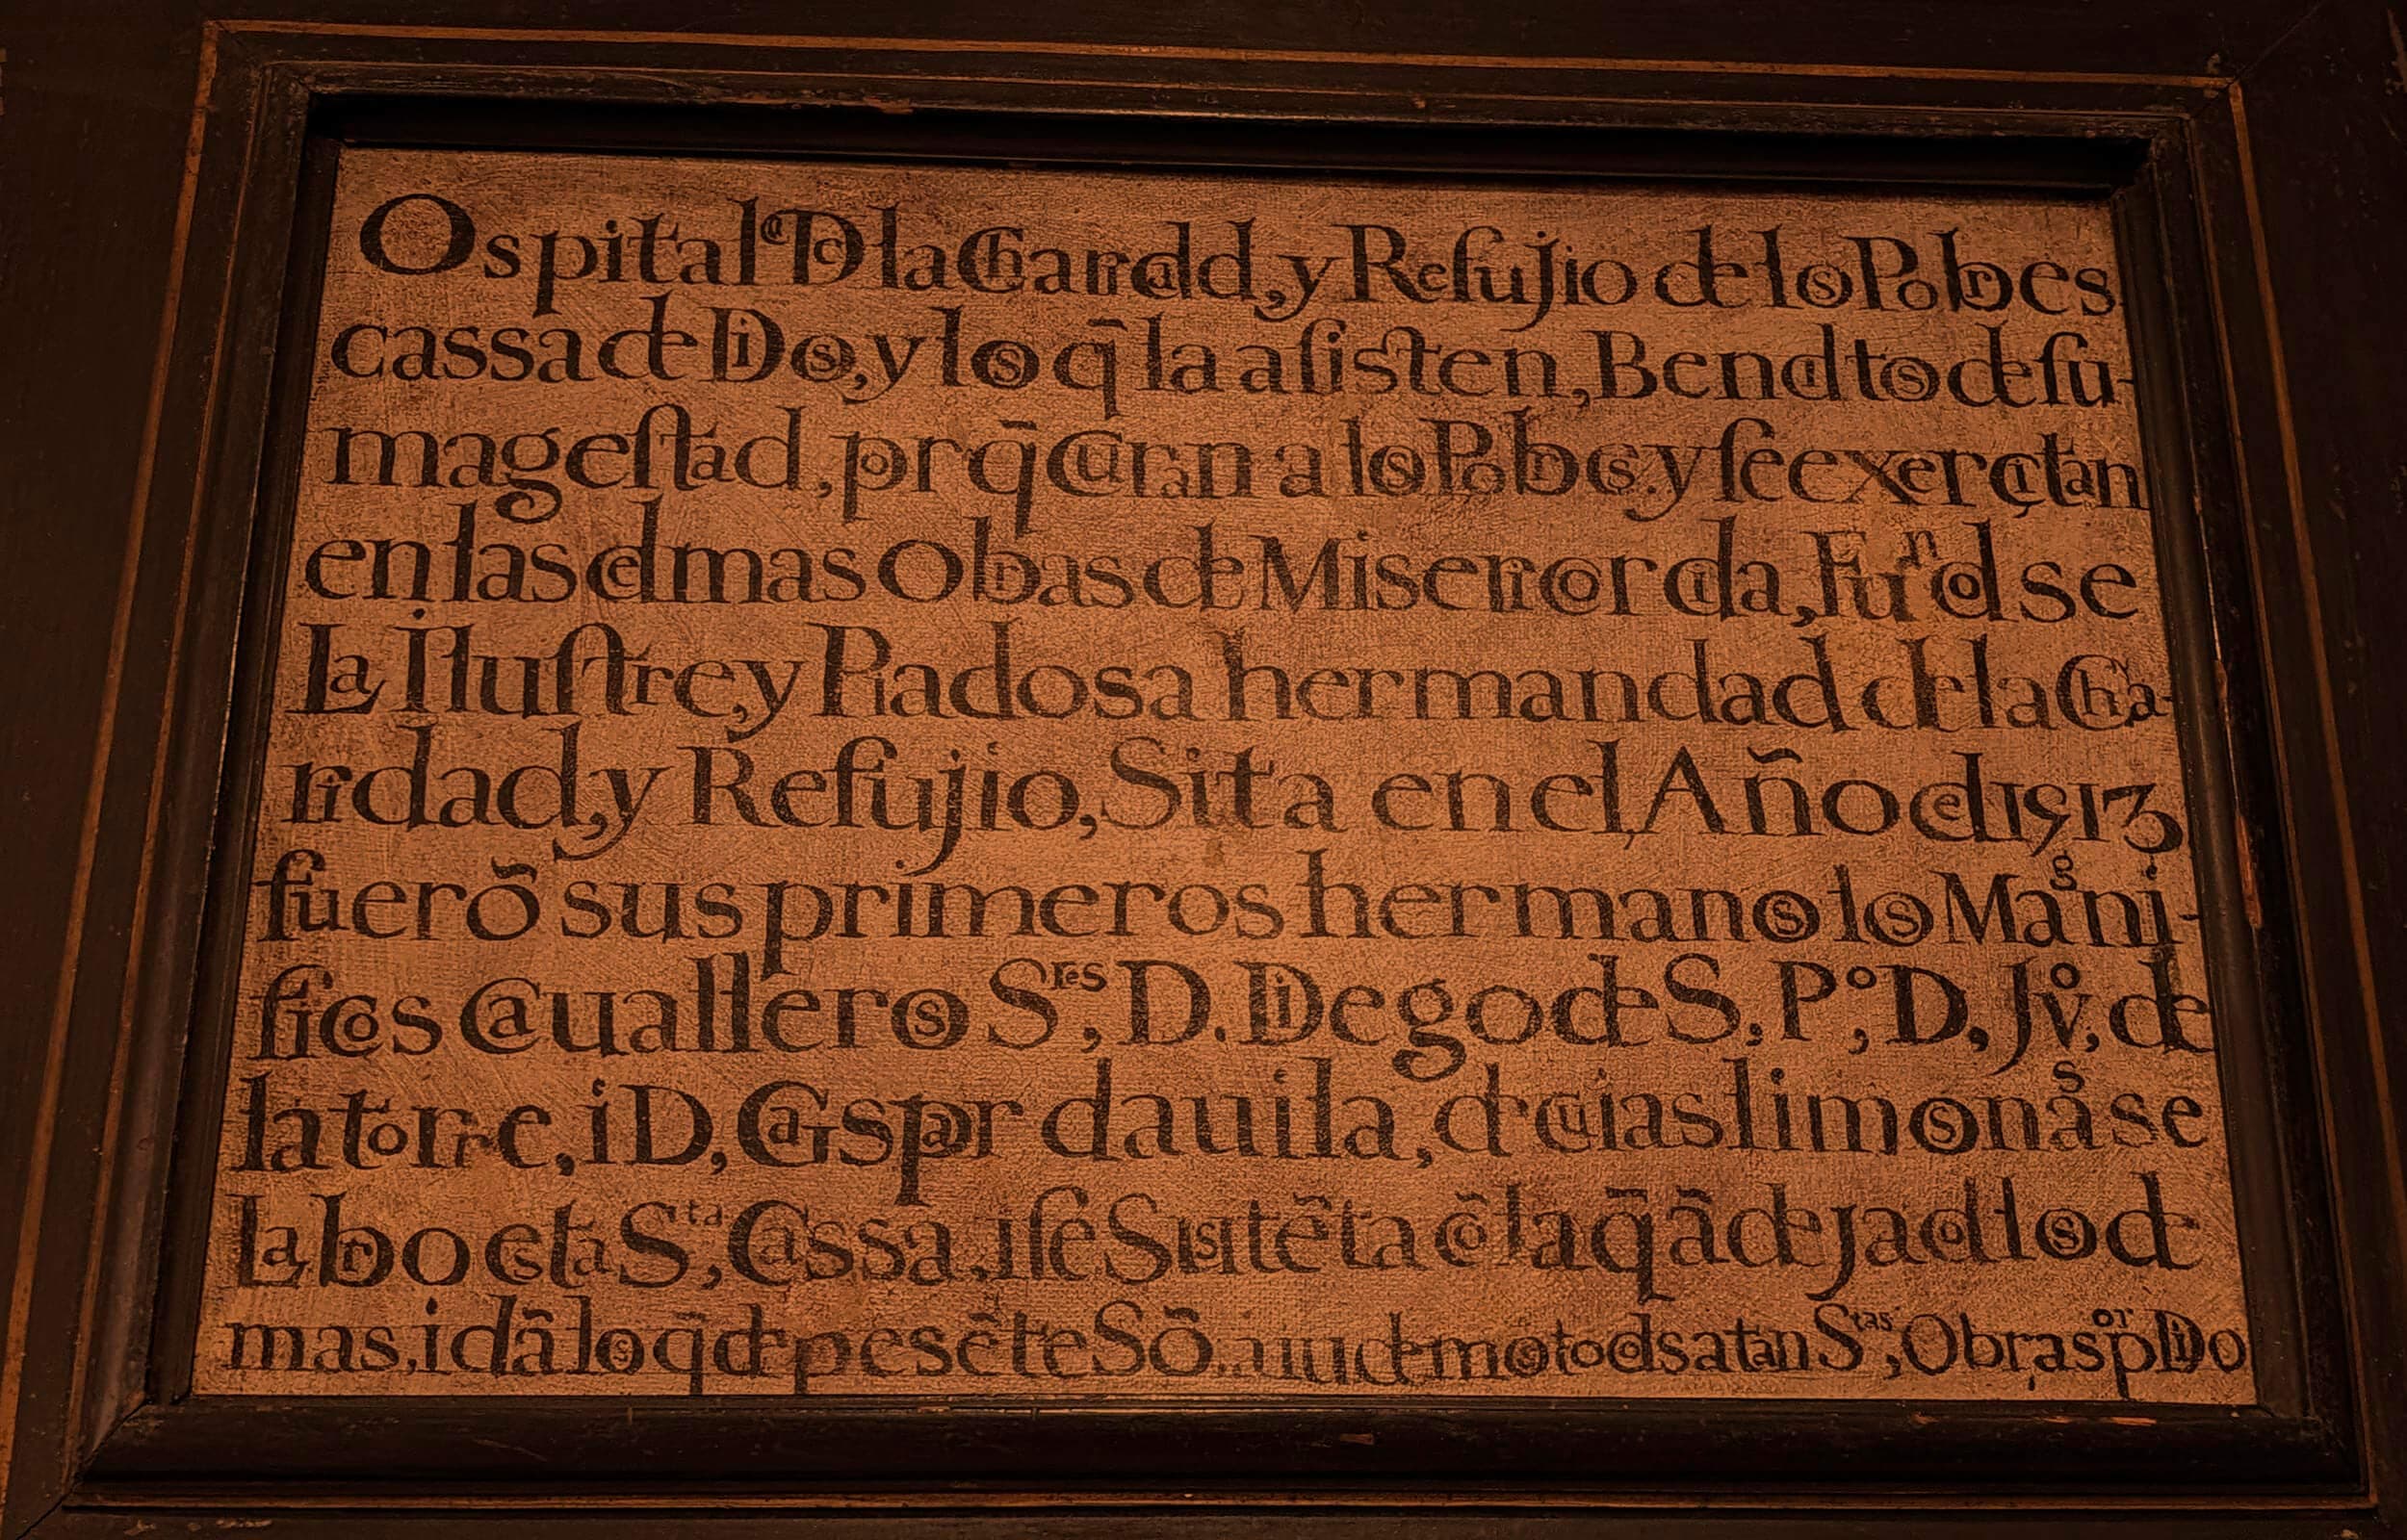 Ospital De la Charidad, y Refujio de los Pobres
cassa de Dios, y los q̄ la asisten, Benditos de su-
magestad, por q̄ Curan a los Pobres. y se exerçitan
en las demas Obras de Misericordia, Fundose
La Ilustre, y Piadosa hermandad de la Cha-
ridad, y Refujio, Sita en el Año de 1513
fuerõ sus primeros hermanos los Magni-
ficos Caualleros S.res D. Diego de S. P.o, D, Jv.o, de
la torre, i D, Gaspar dauila, de cuias limosnas se
Labro esta S.ta Cassa, i se Sustẽta cõ la q̄ ã dejado los de
mas, i dã los q̄ de pesẽte Sõ. aiudemos todos a tan S.tas, Obras por Dio